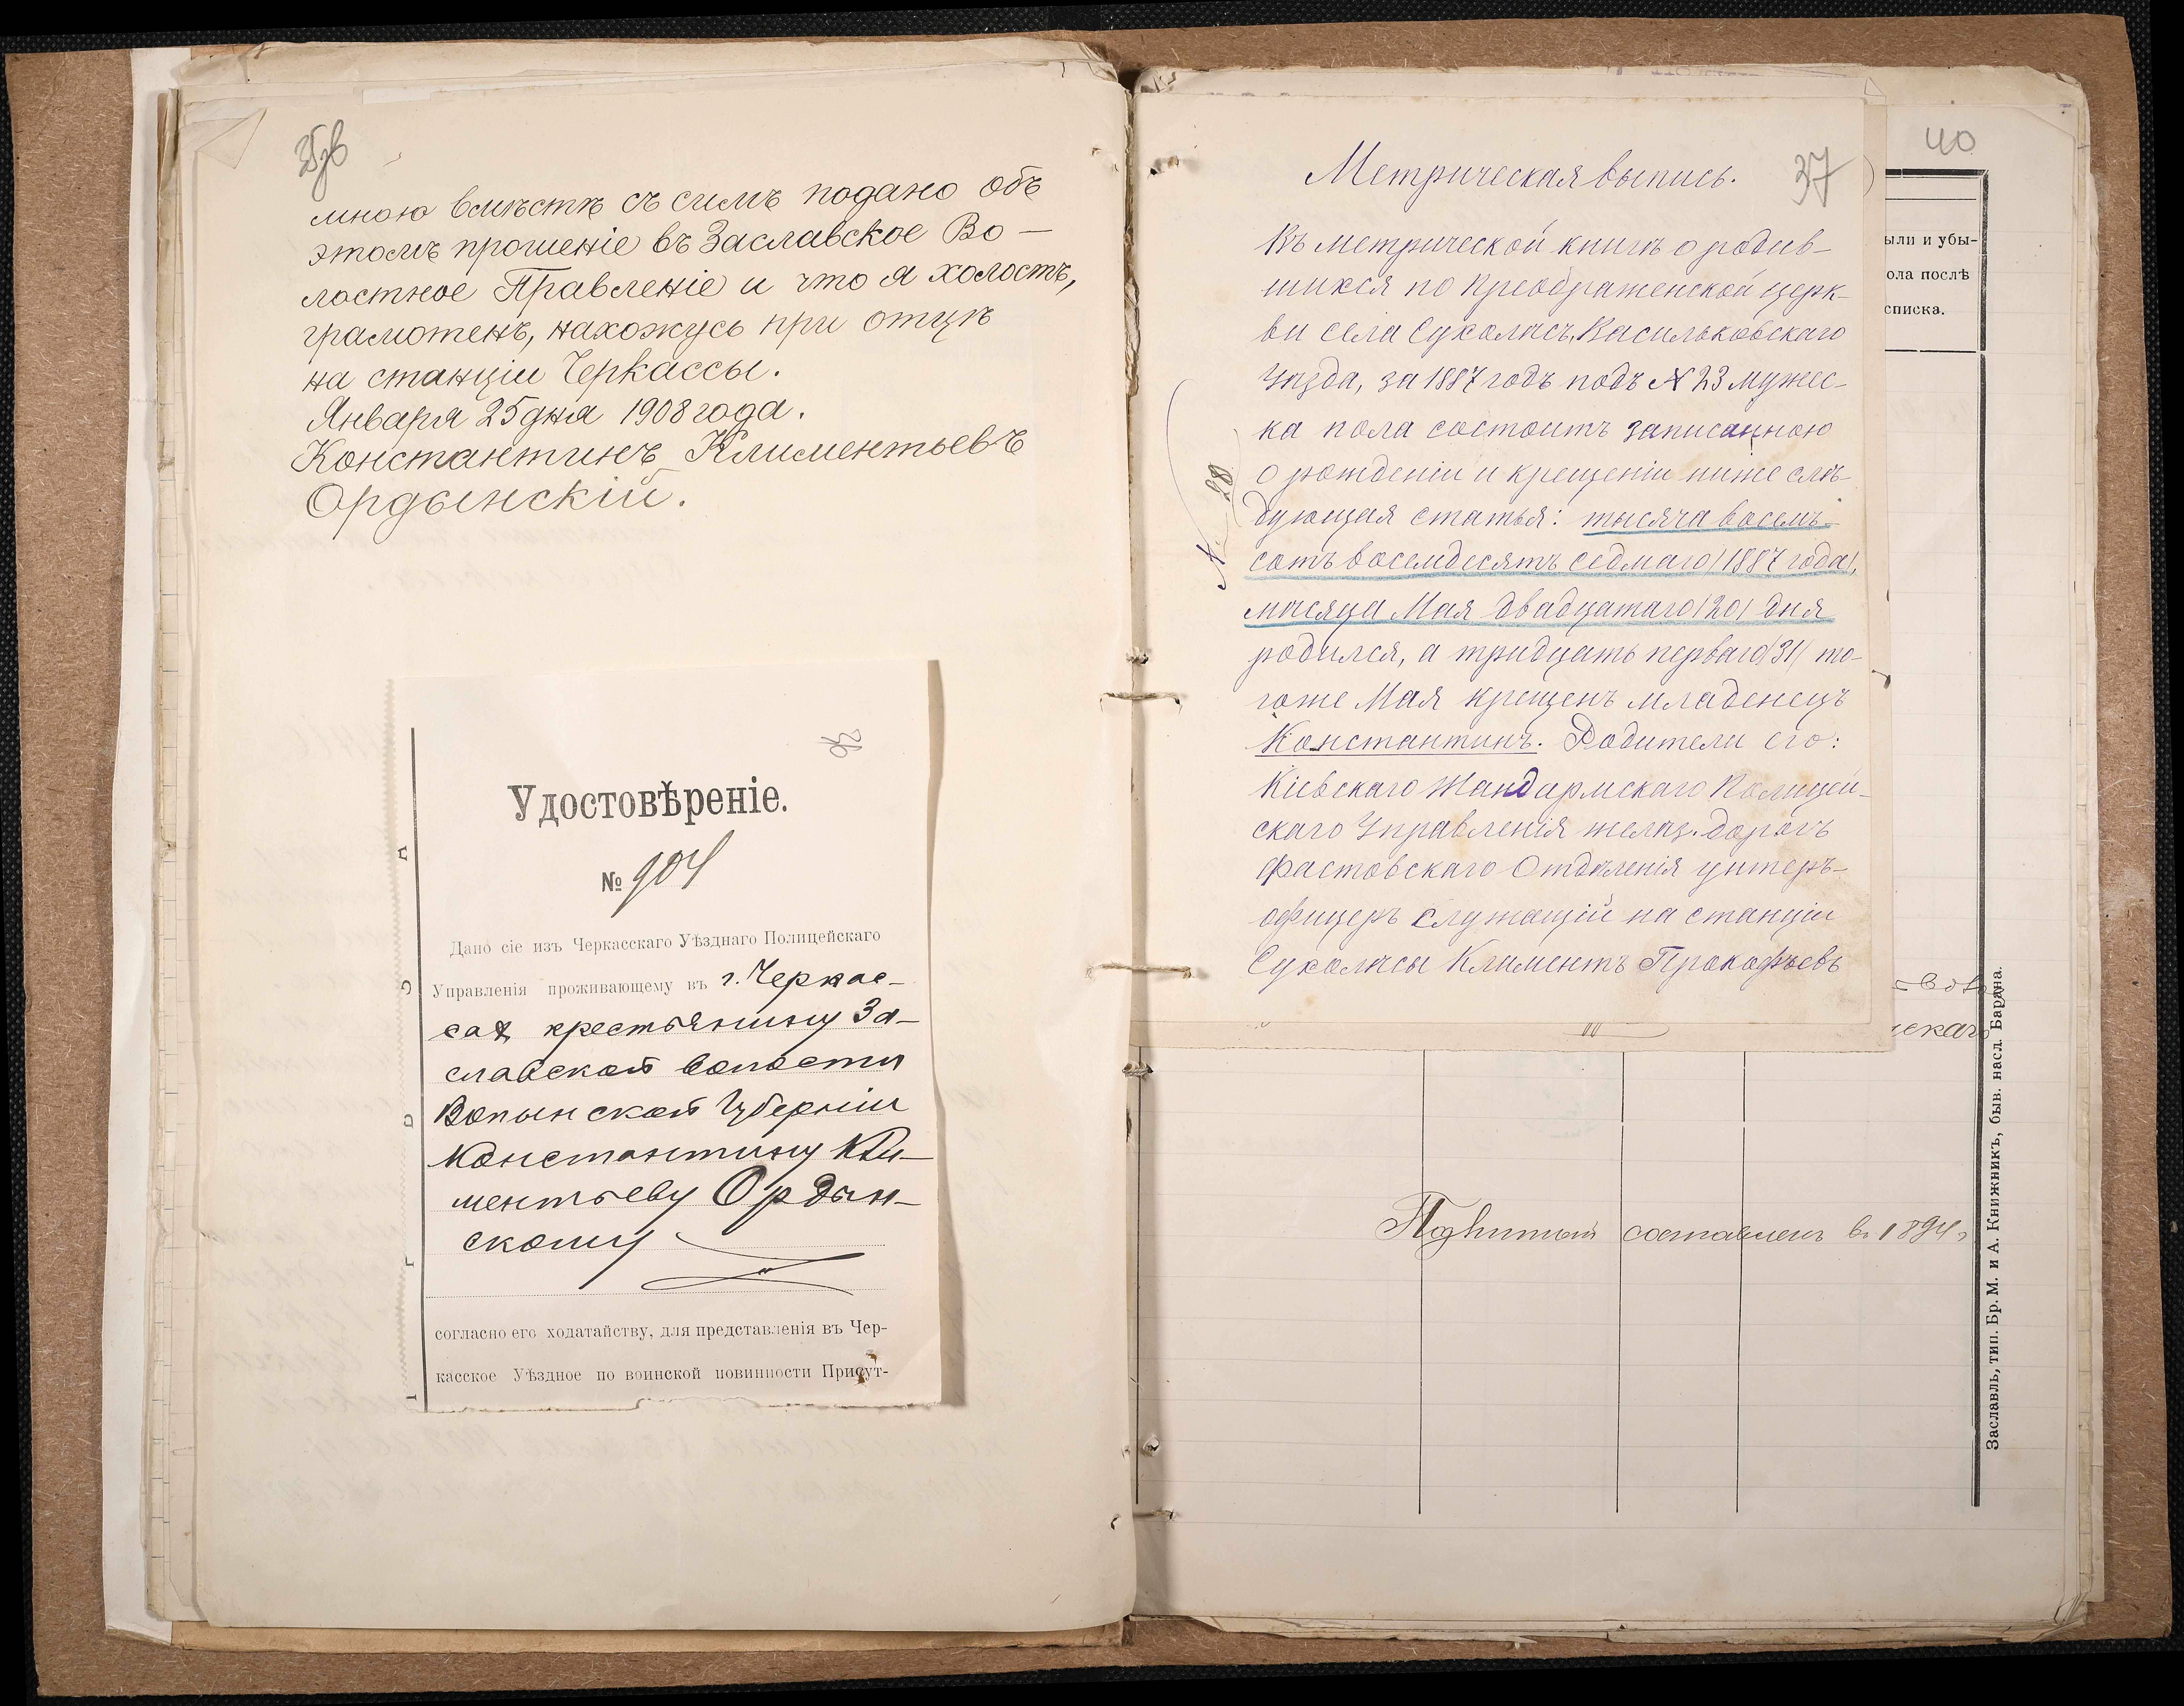 35об
мною вмѣстѣ съ симъ подано объ
этомъ прошеніе въ Заславское Во-
лостное Правленіе и что я холостъ,
грамотенъ, нахожусь при отцѣ
на станціи Черкассы.
Января 25 дня 1908 года.
Константинъ Климентьевъ
Ордынскій.
36
Удостовѣреніе.
№ 904
Дано сіе изъ Черкасскаго Уѣзднаго Полицейскаго
Управленія проживающему въ г. Черкас-
сах крестьянину За-
славской волости
Волынской Губерніи
Константину Кли-
ментьеву Ордын-
скому
согласно его ходатайству, для представленія въ Чер-
касское Уѣздное по воинской повинности Присут-
37
Метрическая выпись.
Въ метрической книгѣ о родив-
шихся по Преображенской церк-
ви села Сухолѣсъ, Васильковскаго
Уѣзда, за 1887 годъ подъ № 23 мужес-
ка пола состоитъ записанною
о рожденіи и крещеніи ниже слѣ-
дующая статья: тысяча восемь-
сотъ восемдесятъ седмаго /1887 года/,
мѣсяца Мая двадцатаго /20/ дня
родился, а тридцать перваго /31/ то-
гоже Мая крещенъ младенецъ
Константинъ. Родители его:
Кіевскаго Жандармскаго Полицей-
скаго Управленія желѣз. дорогъ
Фастовскаго Отдѣленія унтеръ-
офицеръ служащій на станціи
Сухолѣсы Климентъ Прокофьевъ
№ 28
40
ыли и убы-
ола послѣ
списка.
скаго
составленъ в. 1894 г.
Заславль, тип. Бр. М. и А. Книжникъ, быв. насл. Барана.